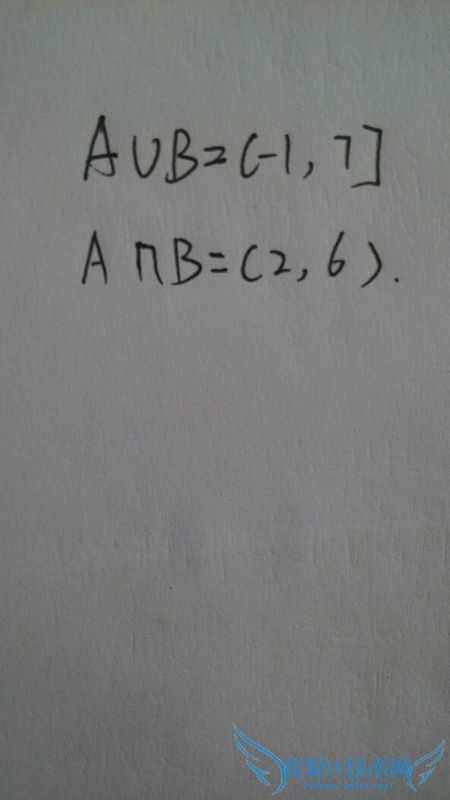 A∪B=(-1,7]
A∩B=(2,6).